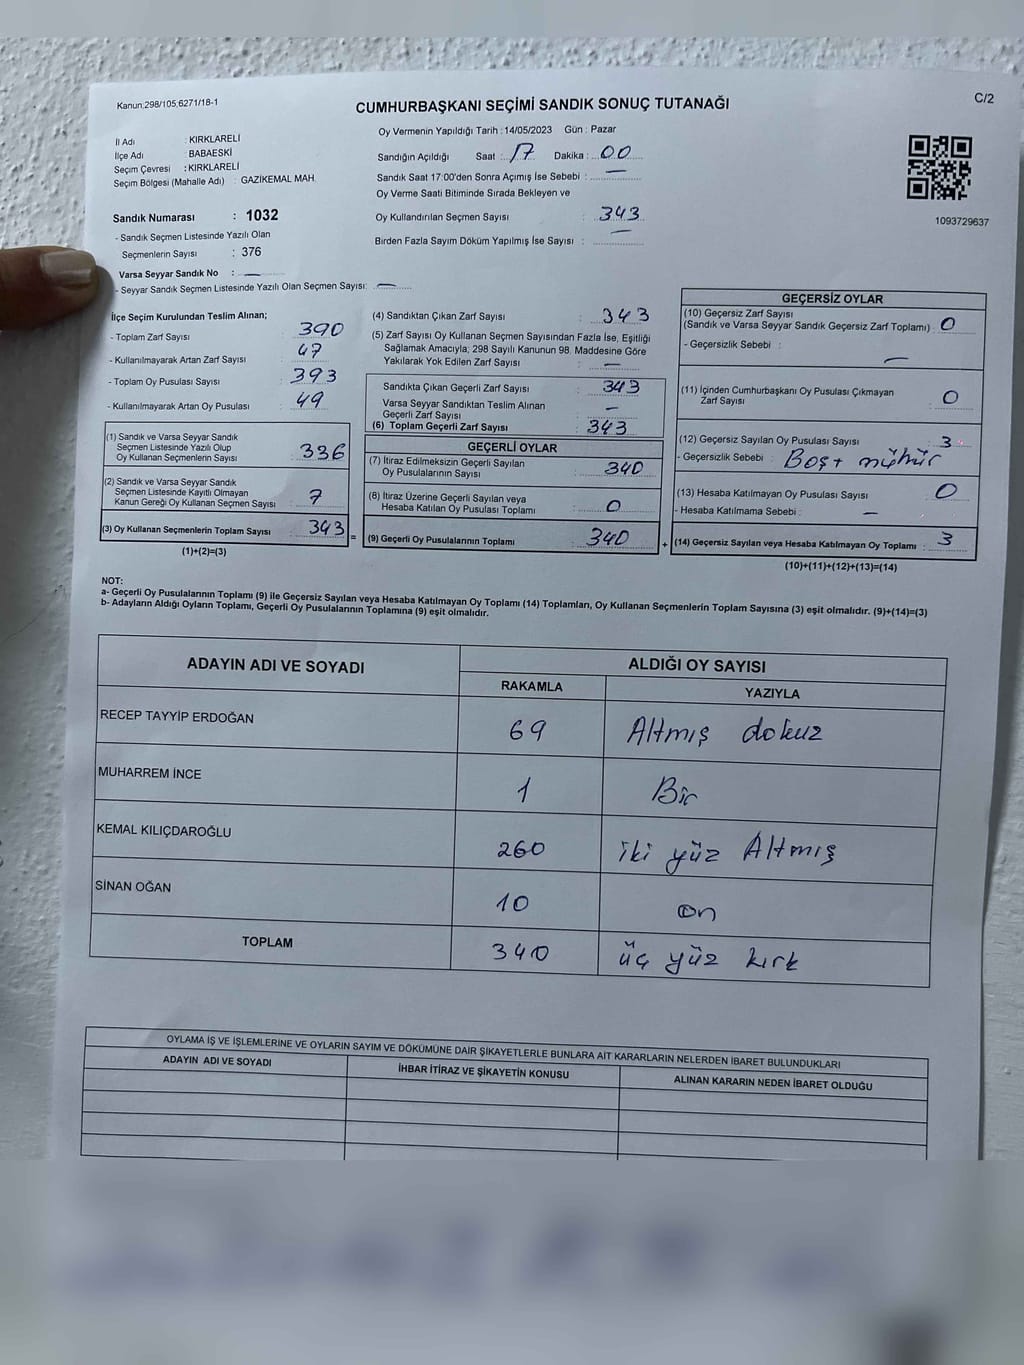 Kanun:298/105;6271/18-1
CUMHURBAŞKANI SEÇİMİ SANDIK SONUÇ TUTANAĞI
C/2
İl Adı : KIRKLARELİ
İlçe Adı : BABAESKİ
Seçim Çevresi : KIRKLARELİ
Seçim Bölgesi (Mahalle Adı) : GAZİKEMAL MAH.
Sandık Numarası : 1032
- Sandık Seçmen Listesinde Yazılı Olan
Seçmenlerin Sayısı : 376
Varsa Seyyar Sandık No : —
- Seyyar Sandık Seçmen Listesinde Yazılı Olan Seçmen Sayısı: —
Oy Vermenin Yapıldığı Tarih : 14/05/2023 Gün : Pazar
Sandığın Açıldığı Saat : 17 Dakika : 00
Sandık Saat 17:00'den Sonra Açımış İse Sebebi : —
Oy Verme Saati Bitiminde Sırada Bekleyen ve
Oy Kullandırılan Seçmen Sayısı : 343
Birden Fazla Sayım Döküm Yapılmış İse Sayısı : —
1093729637
İlçe Seçim Kurulundan Teslim Alınan;
- Toplam Zarf Sayısı : 390
- Kullanılmayarak Artan Zarf Sayısı : 47
- Toplam Oy Pusulası Sayısı : 393
- Kullanılmayarak Artan Oy Pusulası : 49
(1) Sandık ve Varsa Seyyar Sandık
Seçmen Listesinde Yazılı Olup
Oy Kullanan Seçmenlerin Sayısı : 336
(2) Sandık ve Varsa Seyyar Sandık
Seçmen Listesinde Kayıtlı Olmayan
Kanun Gereği Oy Kullanan Seçmen Sayısı : 7
(3) Oy Kullanan Seçmenlerin Toplam Sayısı : 343 =
(1)+(2)=(3)
(4) Sandıktan Çıkan Zarf Sayısı : 343
(5) Zarf Sayısı Oy Kullanan Seçmen Sayısından Fazla İse, Eşitliği
Sağlamak Amacıyla; 298 Sayılı Kanunun 98. Maddesine Göre
Yakılarak Yok Edilen Zarf Sayısı : —
Sandıkta Çıkan Geçerli Zarf Sayısı : 343
Varsa Seyyar Sandıktan Teslim Alınan
Geçerli Zarf Sayısı : —
(6) Toplam Geçerli Zarf Sayısı : 343
GEÇERLİ OYLAR
(7) İtiraz Edilmeksizin Geçerli Sayılan
Oy Pusulalarının Sayısı : 340
(8) İtiraz Üzerine Geçerli Sayılan veya
Hesaba Katılan Oy Pusulası Toplamı : 0
(9) Geçerli Oy Pusulalarının Toplamı : 340 +
GEÇERSİZ OYLAR
(10) Geçersiz Zarf Sayısı
(Sandık ve Varsa Seyyar Sandık Geçersiz Zarf Toplamı) : 0
- Geçersizlik Sebebi : —
(11) İçinden Cumhurbaşkanı Oy Pusulası Çıkmayan
Zarf Sayısı : 0
(12) Geçersiz Sayılan Oy Pusulası Sayısı : 3
- Geçersizlik Sebebi : Boş + mühür
(13) Hesaba Katılmayan Oy Pusulası Sayısı : 0
- Hesaba Katılmama Sebebi : —
(14) Geçersiz Sayılan veya Hesaba Katılmayan Oy Toplamı : 3
(10)+(11)+(12)+(13)=(14)
NOT:
a- Geçerli Oy Pusulalarının Toplamı (9) ile Geçersiz Sayılan veya Hesaba Katılmayan Oy Toplamı (14) Toplamları, Oy Kullanan Seçmenlerin Toplam Sayısına (3) eşit olmalıdır. (9)+(14)=(3)
b- Adayların Aldığı Oyların Toplamı, Geçerli Oy Pusulalarının Toplamına (9) eşit olmalıdır.
ADAYIN ADI VE SOYADI
ALDIĞI OY SAYISI
RAKAMLA YAZIYLA
RECEP TAYYİP ERDOĞAN 69 Altmış dokuz
MUHARREM İNCE 1 Bir
KEMAL KILIÇDAROĞLU 260 iki yüz Altmış
SİNAN OĞAN 10 on
TOPLAM 340 üç yüz kırk
OYLAMA İŞ VE İŞLEMLERİNE VE OYLARIN SAYIM VE DÖKÜMÜNE DAİR ŞİKAYETLERLE BUNLARA AİT KARARLARIN NELERDEN İBARET BULUNDUKLARI
ADAYIN ADI VE SOYADI İHBAR İTİRAZ VE ŞİKAYETİN KONUSU ALINAN KARARIN NEDEN İBARET OLDUĞU